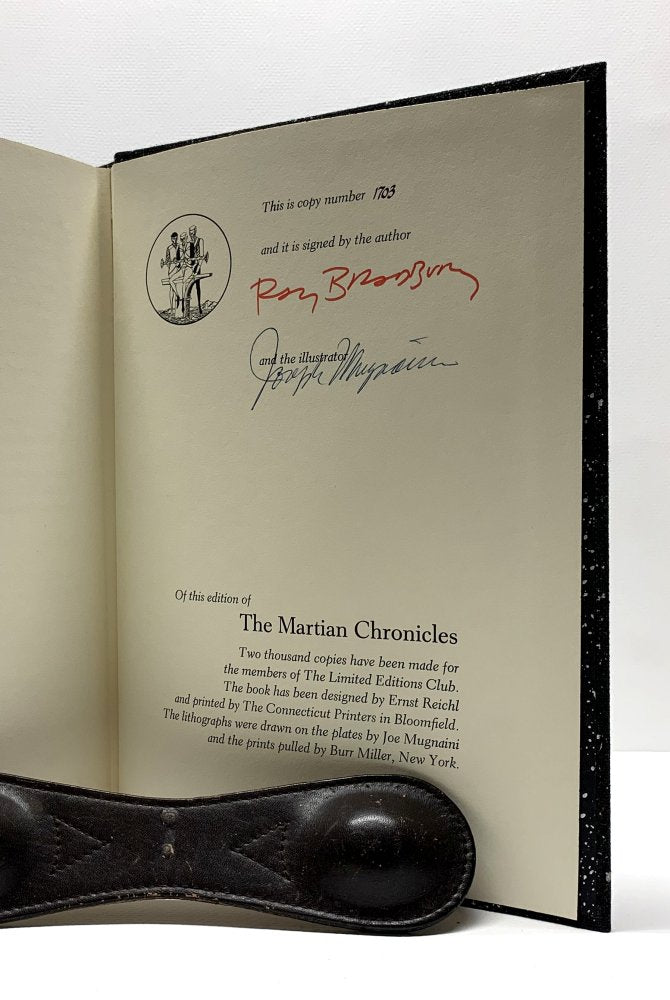 This is copy number 1703
and it is signed by the author
Ray Bradbury
and the illustrator
Joseph Mugnaini
Of this edition of
The Martian Chronicles
Two thousand copies have been made for
the members of The Limited Editions Club.
The book has been designed by Ernst Reichl
and printed by The Connecticut Printers in Bloomfield.
The lithographs were drawn on the plates by Joe Mugnaini
and the prints pulled by Burr Miller, New York.